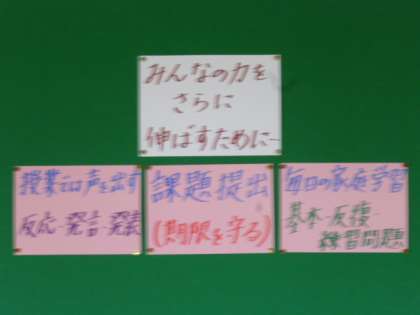 みんなの力を
さらに
伸ばすために…
授業では声を出す
反応・発言・発表
課題提出
(期限を守る)
毎日の家庭学習
基本・反復・
練習問題